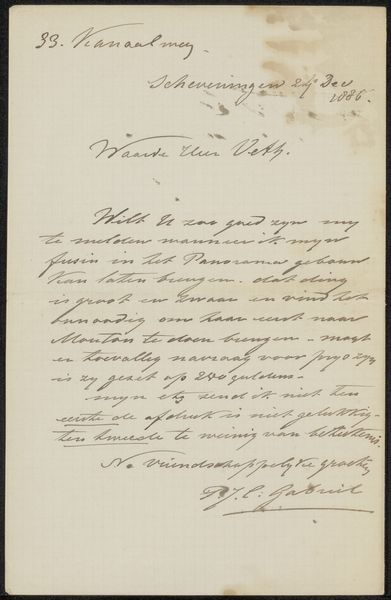 33. Kanaalweg.
Scheveningen 24 Dec
1886.
Waarde Heer Veth.
Wilt U zoo goed zyn my
te melden wanneer ik myn
fusin in het Panorama gebouw
kan laten brengen. dat ding
is groot en zwaar en vind het
onnoodig om haar eerst naar
Mouton te doen brengen. mogt
er toevallig navraag voor prys zyn
is zy gezet op 200 guldens.
myn ets zend ik niet ten
eerste de afdruk is niet gelukkig
ten tweede te weinig van beteekenis.
Na vriendschappelyke groeten
P.J.C. Gabriël